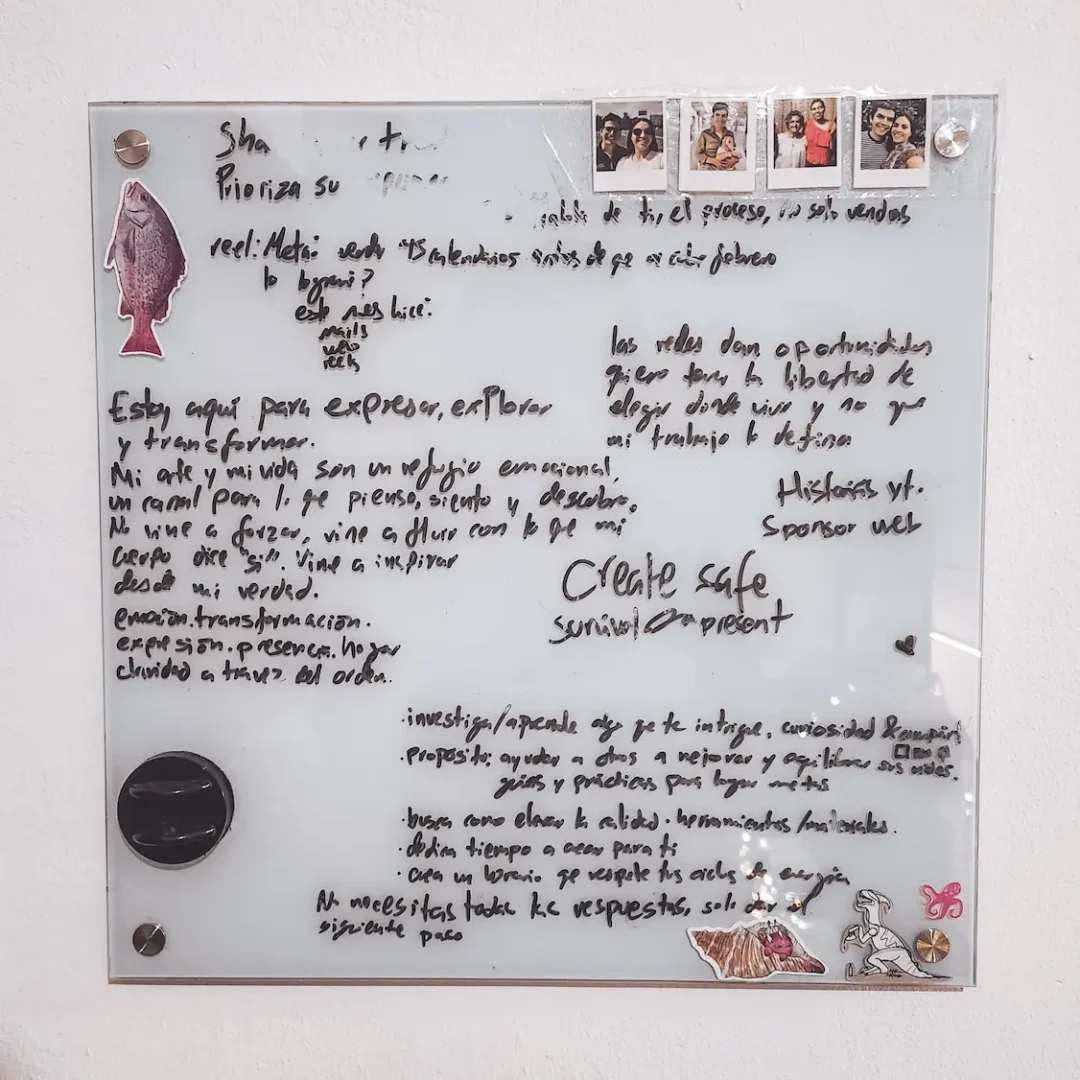 Sha
Prioriza su
de ti, el proceso, no solo vendas
reel: Meta: vender 45 calendarios antes de que febrero
lo logramé?
este mes hice:
mails
web
reels
las redes dan oportunidades
quiero tener la libertad de
elegir donde vivir y no que
mi trabajo lo defina
Estoy aquí para expresar, explorar
y transformar.
Mi arte y mi vida son un refugio emocional,
un canal para lo que pienso, siento y descubro.
No vine a forzar, vine a fluir con lo que mi
cuerpo dice "si". Vine a inspirar
desde mi verdad.
emoción.transformación.
expresión.presencia.hogar
claridad a travez del orden.
Historias yt.
Sponsor web
Create safe
survival present
·investiga/aprende algo que te intrigue, curiosidad &
·proposito: ayudar a otros a mejorar y equilibrar sus vidas.
guías y prácticas para lograr metas
·busca como elevar la calidad. herramientas/materiales.
·dedica tiempo a crear para ti
·crea un horario que respete tus ciclos de energía
No necesitas todas las respuestas, solo dar el
siguiente paso